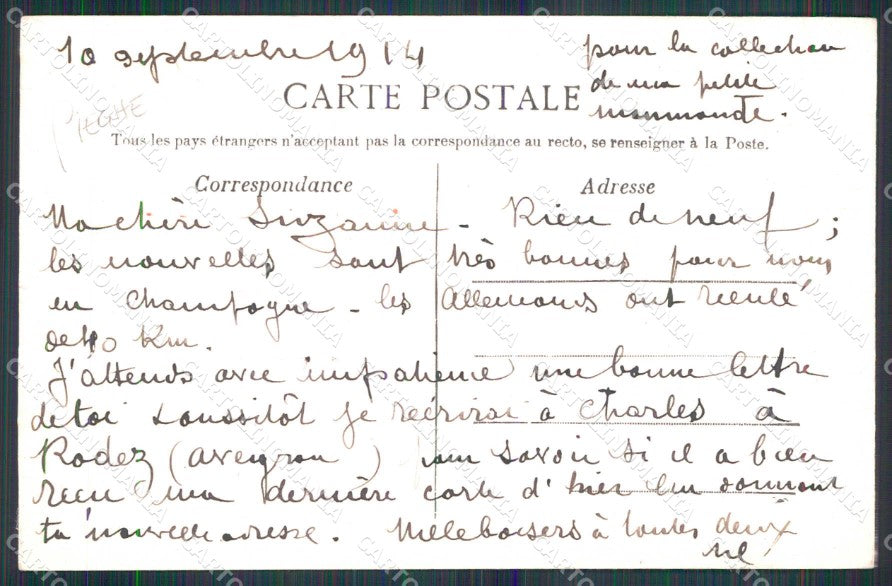 10 septembre 1914
pour la collection
de ma petite
CARTE POSTALE
Tous les pays étrangers n'acceptant pas la correspondance au recto, se renseigner à la Poste.
Correspondance
Adresse
Ma chère Suzanne - Rien de neuf ;
les nouvelles sont très bonnes pour nous
en Champagne - les Allemands ont reculé
de 40 Km.
J'attends avec impatience une bonne lettre
de toi & aussitôt je récrirai à Charles à
Rodez (aveyron) pour savoir si il a bien
recu ma dernière carte d'hier lui donnant
ta nouvelle adresse. Mille baisers à toutes deux
CARTOLINOMANIA